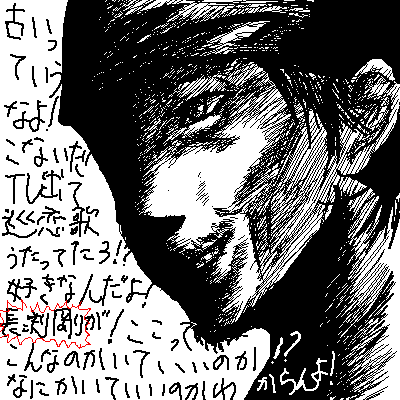 古いっ
ていう
なよ!
こないだ
TV出て
巡恋歌
うたってたろ!?
好きなんだよ!
長渕剛が!ここって
こんなのかいていいのか!?
なにかいていいのかわからんよ!